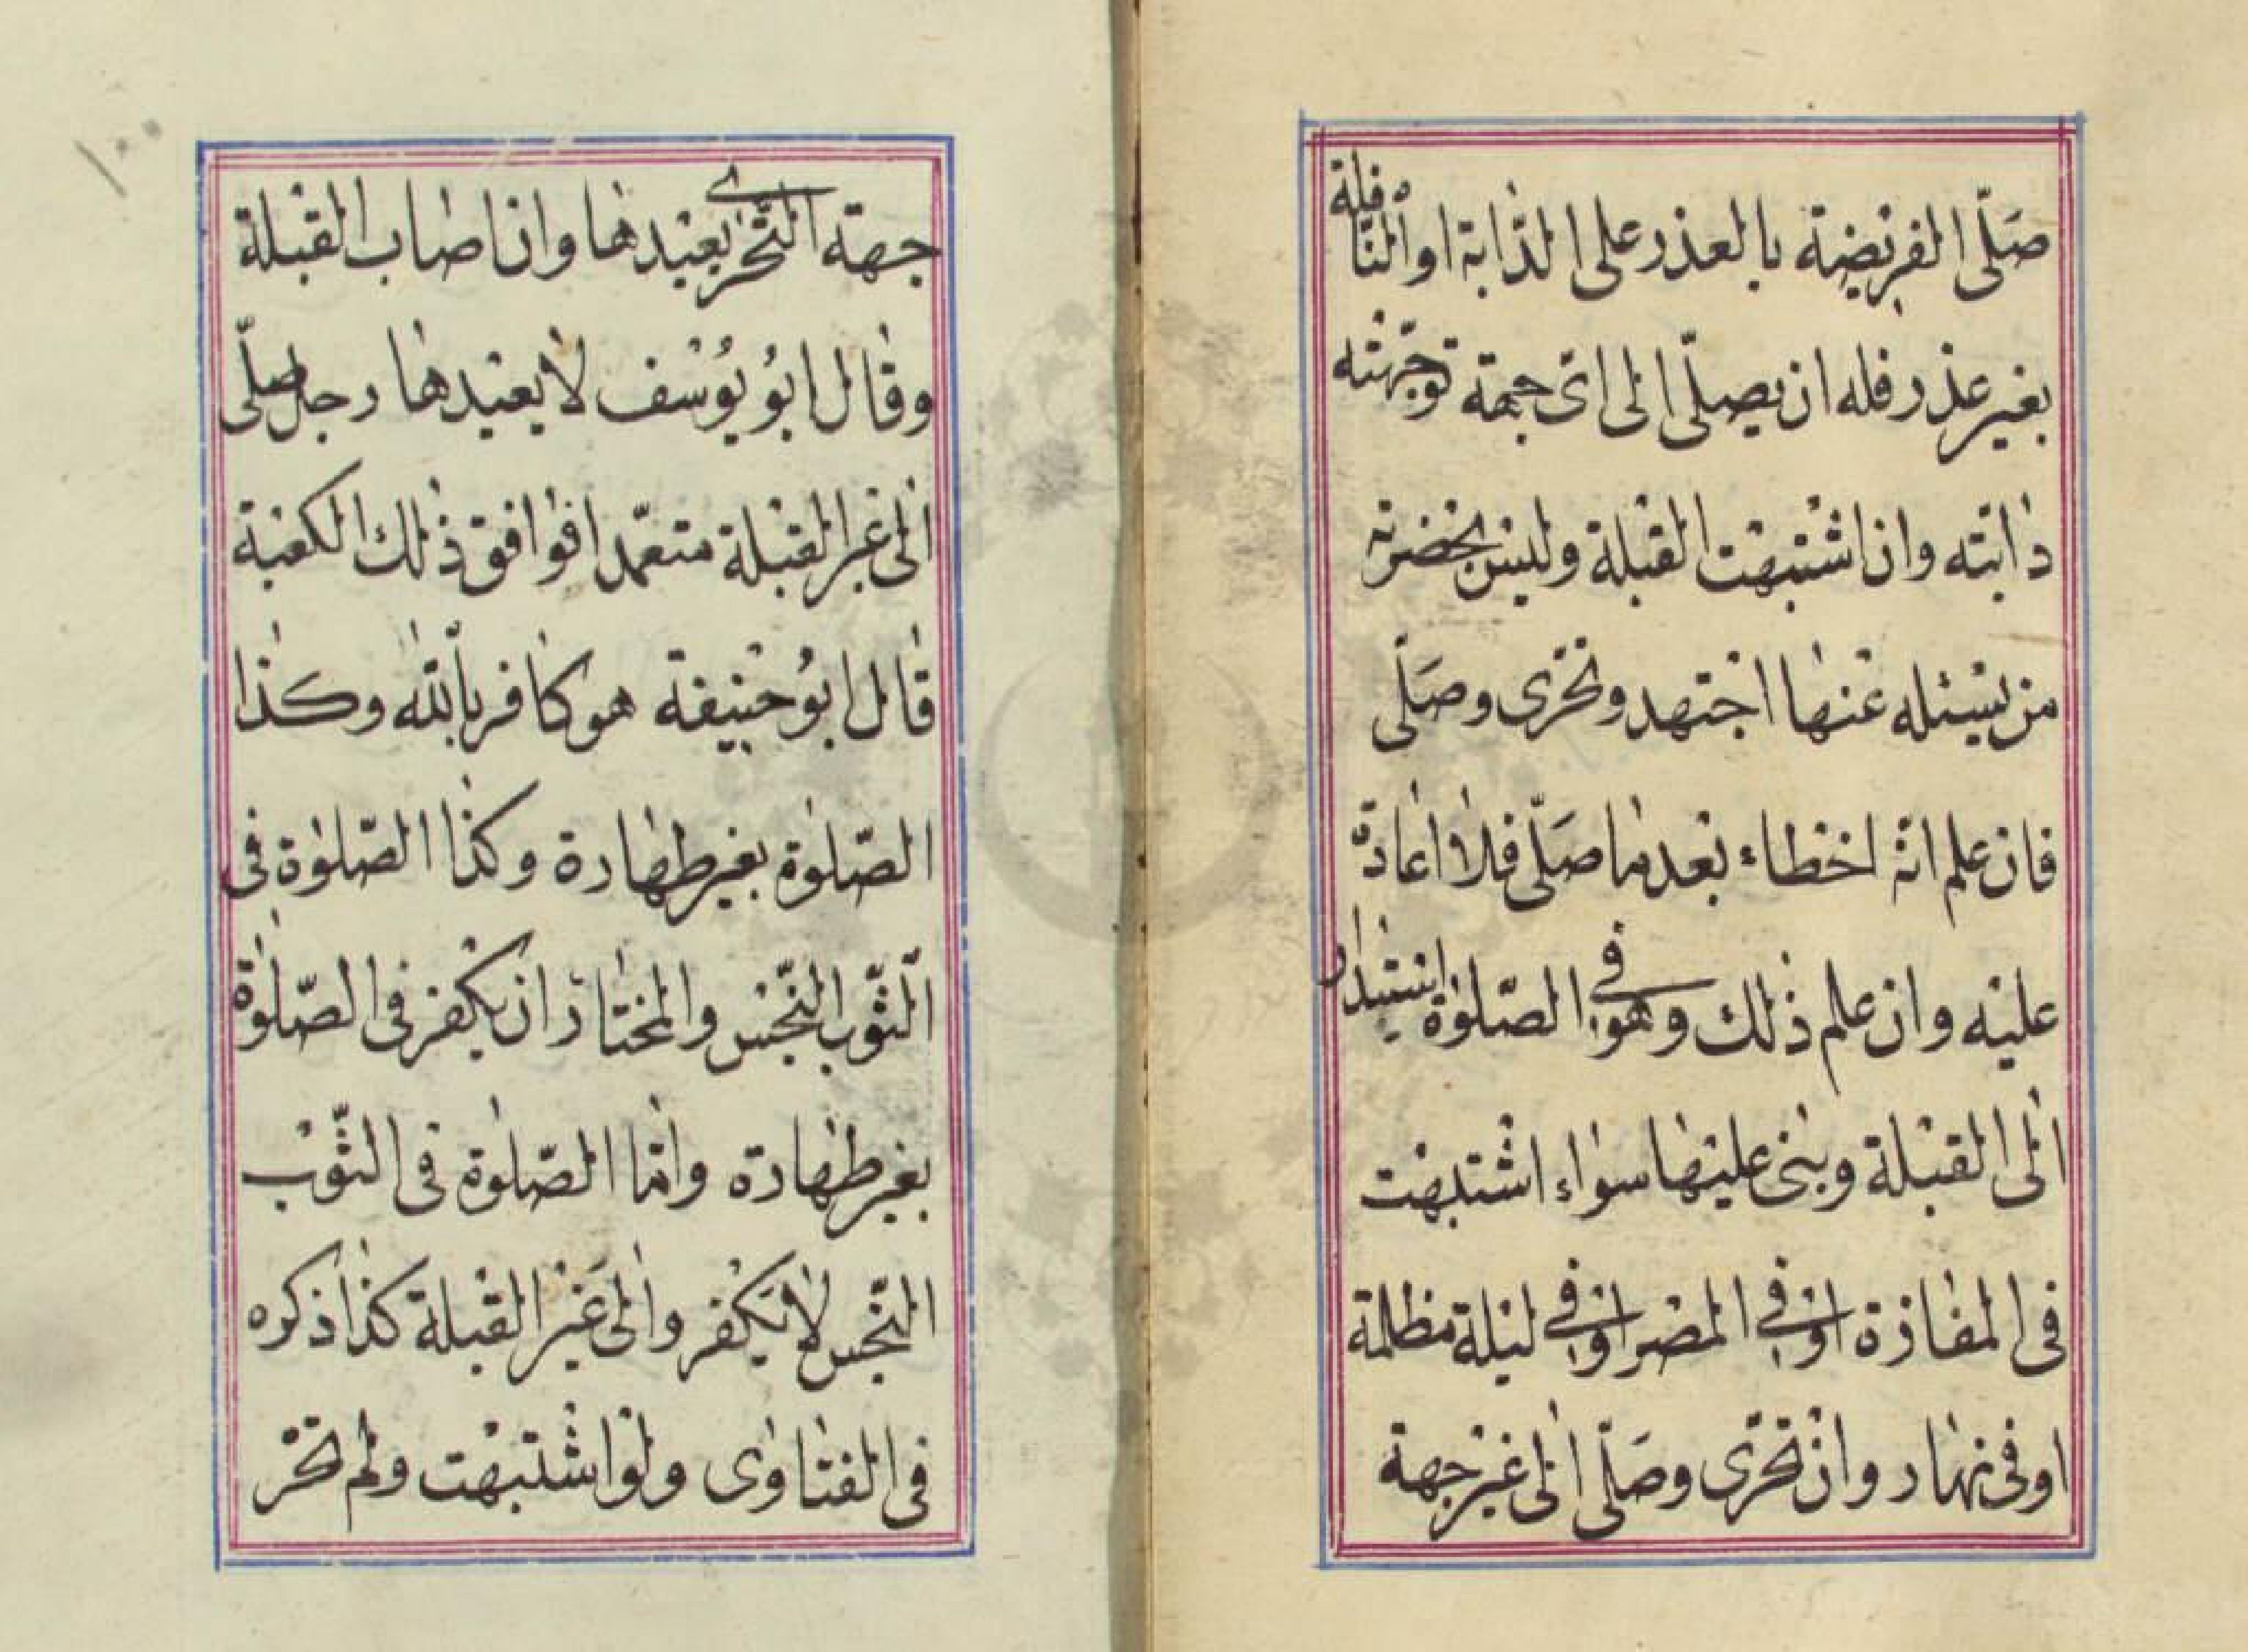 صَلّى الفريضة بالعذر على الدّابة او النّافلة
بغير عذر فله ان يصلّى الى اىّ جهة توجّهته
دابته وان اشتبهت القبلة وليس بحضرته
من يسئله عنها اجتهد وتحرّى وصَلّى
فان علم انه اخطاء بعد ما صَلّى فلا اعادة
عليه وان علم ذلك وهو فى الصّلوة استدار
الى القبلة وبنى عليها سواء اشتبهت
فى المفازة او فى المصر او فى ليلة مظلمة
او فى نهار وان تحرّى وصَلّى الى غير جهة
١٠٠
جهة التّحرى يعيدها وان اصاب القبلة
وقال ابو يُوسف لا يعيدها رجل صلّى
الى غير القبلة متعمّدا فوافق ذلك الكعبة
قال ابوُ حنيفة هو كافر بالله وكذا
الصّلوة بغير طهارة وكذا الصّلوة فى
الثّوب النّجس والمختار ان يكفر فى الصّلوة
بغير طهارة وامّا الصّلوة فى الثّوب
النّجس لا يكفر والى غير القبلة كذا ذكره
فى الفتاوى ولو اشتبهت ولم تحر